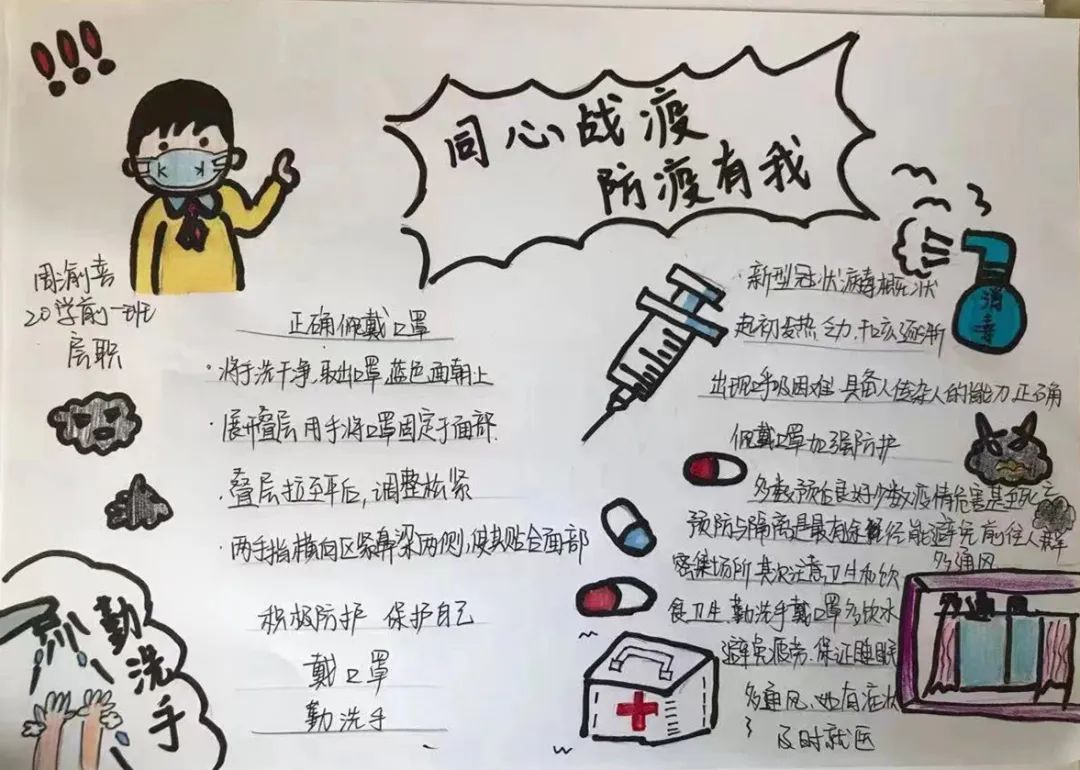 同心战疫
防疫有我
20学前一班
层职
正确佩戴口罩
·将手洗干净,取出口罩,蓝色面朝上
·展开叠层 用手将口罩固定于面部.
·叠层拉至平后,调整松紧
·两手指横向区紧鼻梁两侧,使其贴合面部
积极防护 保护自己
戴口罩
勤洗手
勤洗手
消毒
·新型冠状病毒概况状
起初发热,乏力,干咳逐渐
出现呼吸困难 具备人传染人的能力.正确
佩戴口罩加强防护
多数预后良好少数疫情危害甚至死亡
预防与隔离是最有途径能避免前往人群
密集场所 其次注意卫生和饮
多通风
食卫生.勤洗手戴口罩多饮水
避免疲劳.保证睡眠
多通风、如有症状
及时就医